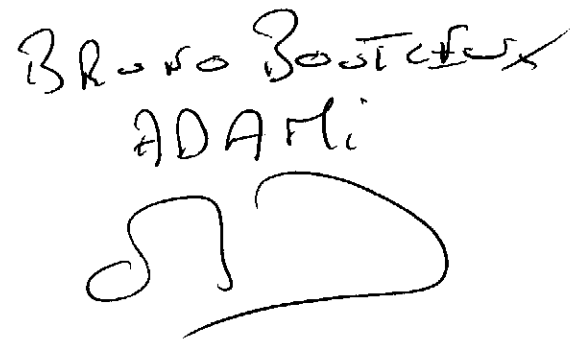 BRUNO BOUTLEUX
ADAMi